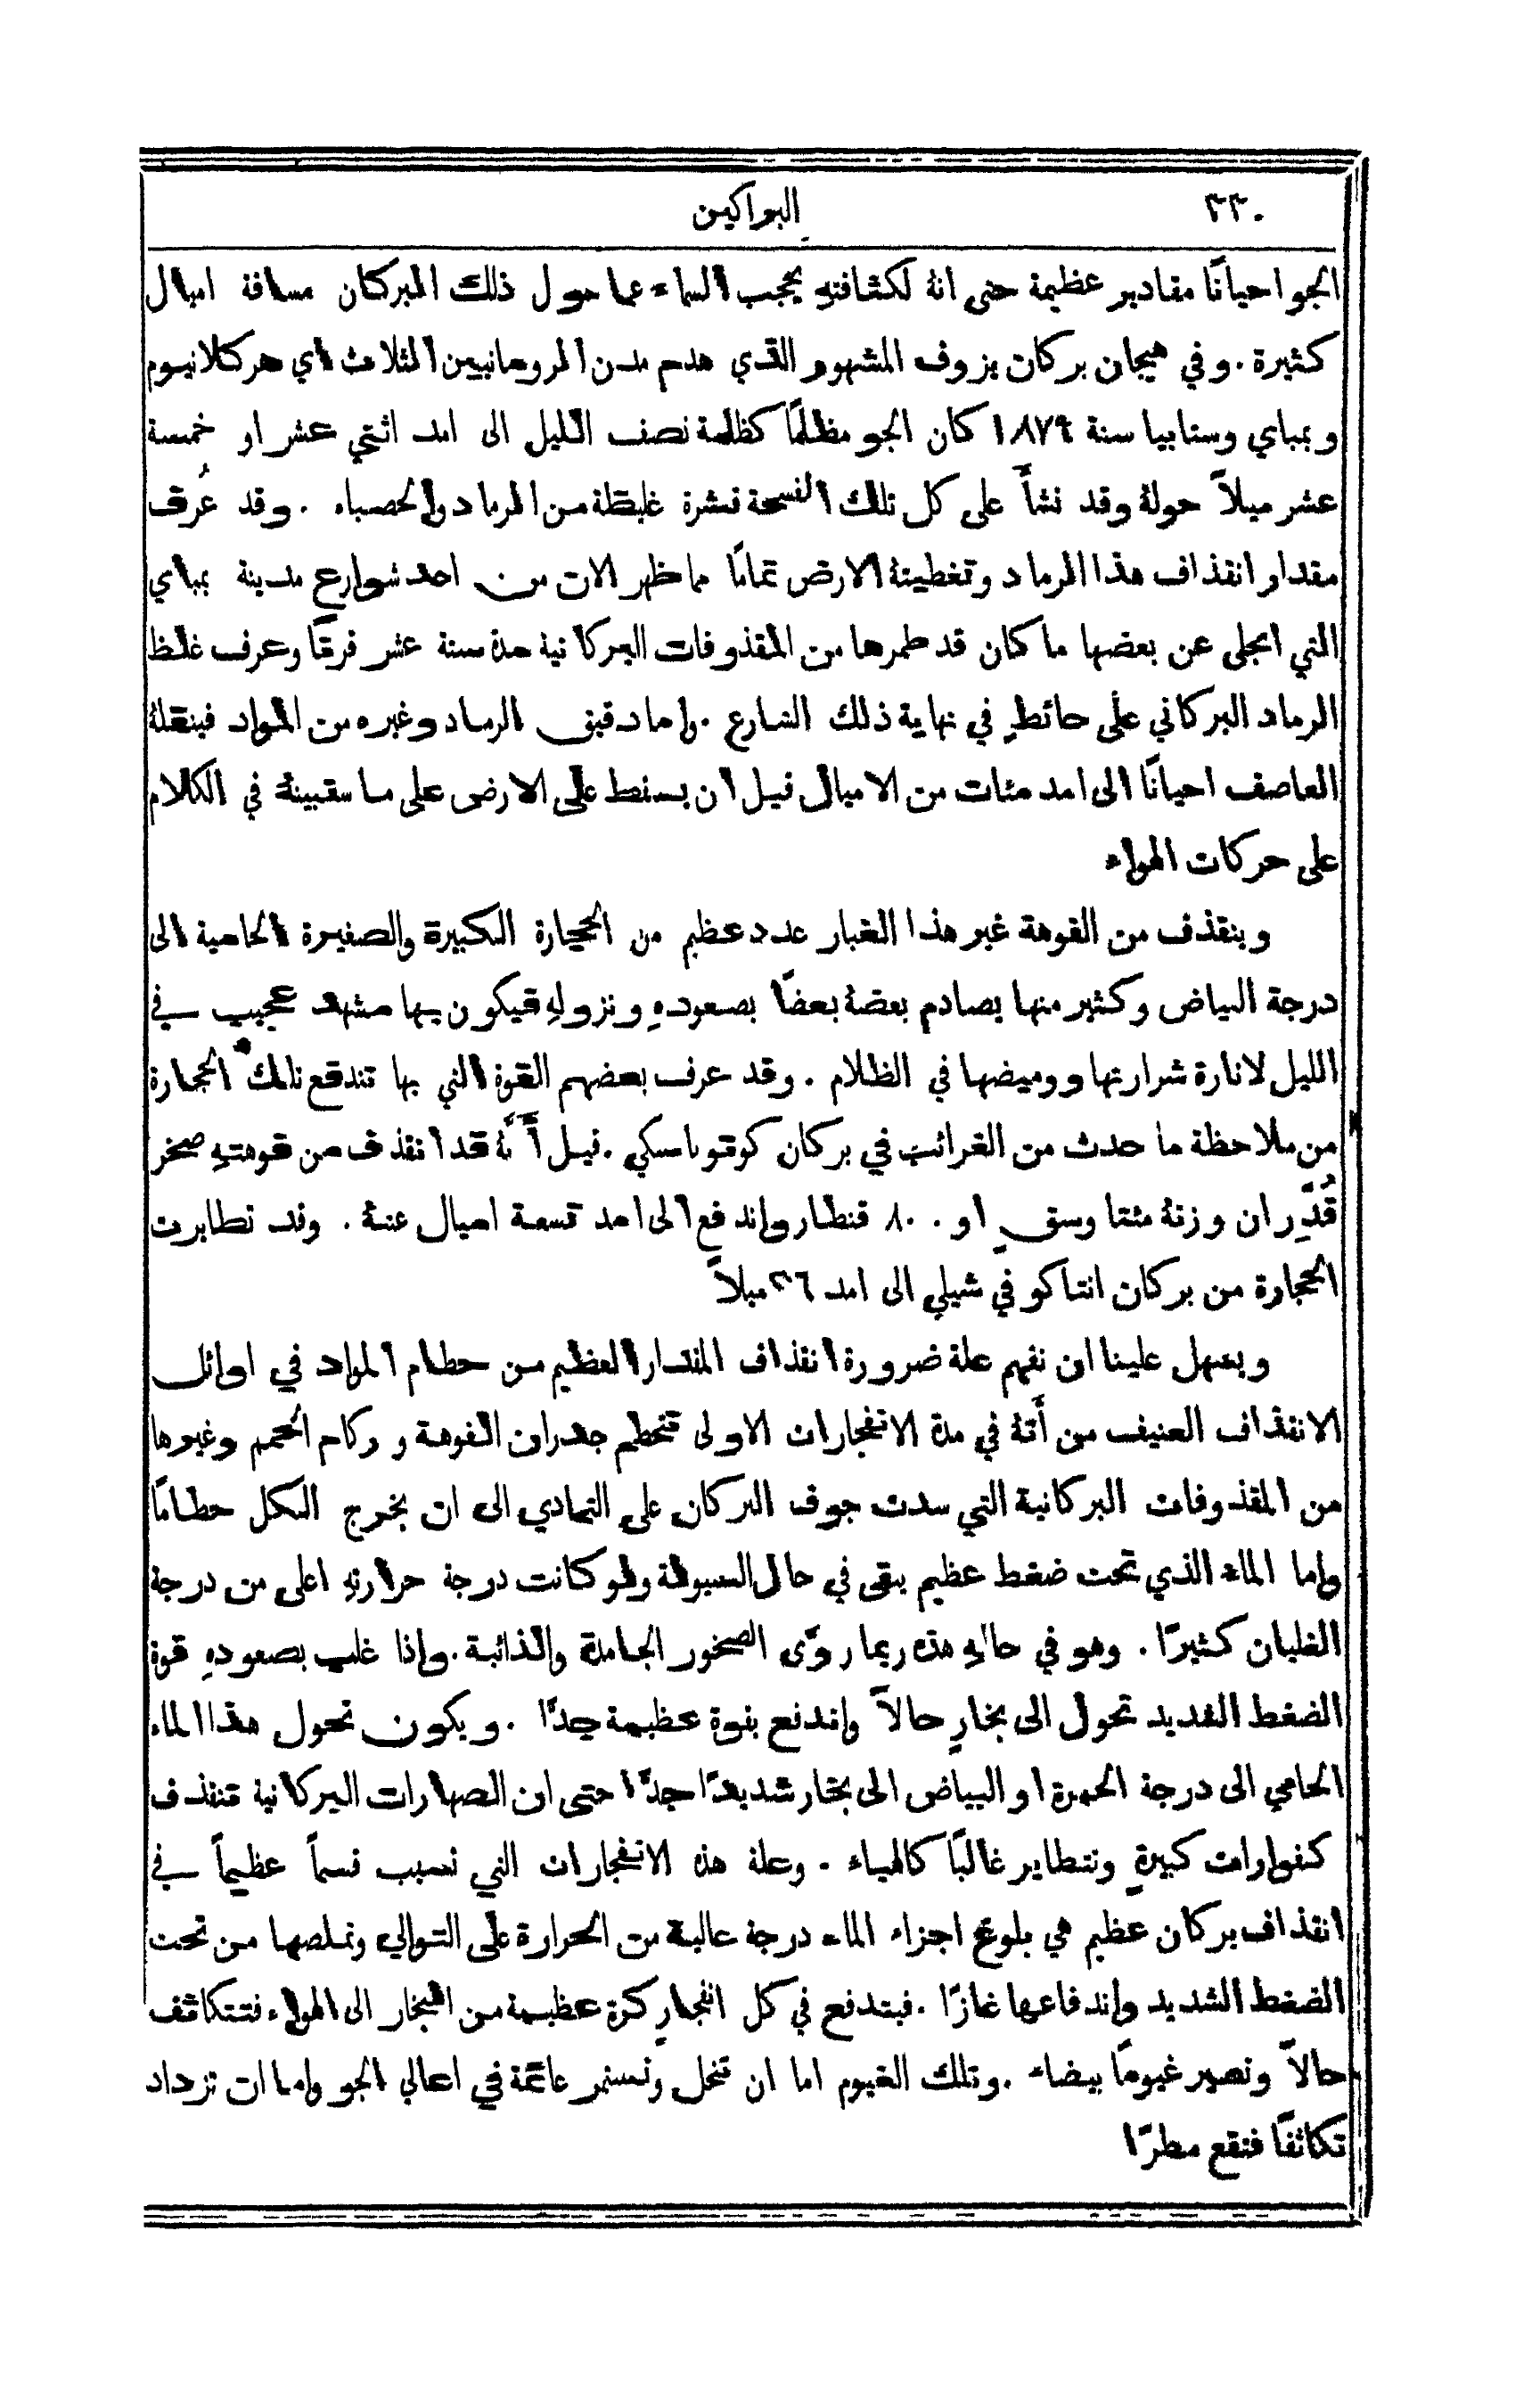 ٢٣٠ البراكين
الجو احيانًا مقادير عظيمة حتى انهُ لكثافتهِ يحجب السماء عما حول ذلك البركان مسافة اميال
كثيرة . وفي هيجان بركان يزوف المشهور الذي هدم مدن الرومانيين الثلاث اي هركلانيوم
وبمباي وستابيا سنة ١٨٧٩ كان الجو مظلمًا كظلمة نصف الليل الى امد اثنتي عشر او خمسة
عشر ميلاً حولهُ وقد نشأَ على كل تلك الفسحة قشرة غليظة من الرماد والحصباء . وقد عُرف
مقدار انقذاف هذا الرماد وتغطيتهُ الارض تمامًا مما ظهر الان من احد شوارع مدينة بمباي
التي انجلى عن بعضها ما كان قد طمرها من المقذوفات البركانية مدة ستة عشر قرنًا وعرف غلظ
الرماد البركاني على حائطٍ في نهاية ذلك الشارع . واما دقيق الرماد وغيره من المواد فينقلهُ
العاصف احيانًا الى امد مئات من الاميال قبل ان يسقط على الارض على ما سنبينهُ في الكلام
على حركات الهواء
وينقذف من الفوهة غير هذا الغبار عدد عظيم من الحجارة الكبيرة والصغيرة الحامية الى
درجة البياض وكثير منها يصادم بعضهُ بعضًا بصعودهِ ونزولهِ فيكون بها مشهد عجيب في
الليل لانارة شرارتها ووميضها في الظلام . وقد عرف بعضهم القوة التي بها تندفع تلك الحجارة
من ملاحظة ما حدث من الغرائب في بركان كوتوباسكي . قيل أَنَّهُ قد انقذف من فوهتهِ صخر
قُدِّر ان وزنهُ مئتا وسقٍ او ٨٠٠ قنطار واندفع الى امد تسعة اميال عنهُ . وقد تطايرت
الحجارة من بركان انتاكو في شيلي الى امد ٣٦ ميلاً
ويسهل علينا ان نفهم علة ضرورة انقذاف المقدار العظيم من حطام المواد في اوائل
الانقذاف العنيف من أَنهُ في مدة الانفجارات الاولى تتحطم جدران الفوهة وركام الحُمم وغيرها
من المقذوفات البركانية التي سدت جوف البركان على التمادي الى ان يخرج الكل حطامًا
واما الماء الذي تحت ضغط عظيم يبقى في حال السيولة ولو كانت درجة حرارتهِ اعلى من درجة
الغليان كثيرًا . وهو في حالهِ هذه ربما روَّى الصخور الجامدة والذائبة . واذا غلب بصعودهِ قوة
الضغط الشديد تحول الى بخارٍ حالاً واندفع بقوة عظيمة جدًّا . ويكون تحول هذا الماء
الحامي الى درجة الحمرة او البياض الى بخار شديدًا جدًّا حتى ان الصهارات البركانية تنقذف
كفوارات كبيرةٍ وتتطاير غالبًا كالهباء . وعلة هذه الانفجارات التي تسبب قسماً عظيماً في
انقذاف بركان عظيم هي بلوغ اجزاء الماء درجة عالية من الحرارة على التوالي وتملصها من تحت
الضغط الشديد واندفاعها غازًا . فيندفع في كل انفجارٍ كرة عظيمة من البخار الى الهواء فتتكاثف
حالاً وتصير غيومًا بيضاء . وتلك الغيوم اما ان تنحل وتستمر عائمة في اعالي الجو واما ان تزداد
تكاثفًا فتقع مطرًا